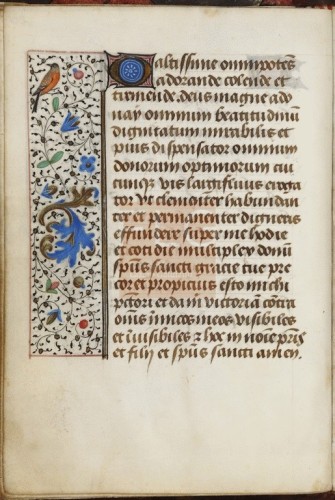 O altissime omnipotēs
adorande colende et
timende. deus magne ado
nay omnium beatitudinū
dignitatum mirabilis et
pius dispensator omnium
donorum optimorum cui
cunque vis largifluus eroga
tor Vt clementer habundan
ter et permanenter digneris
effundere super me hodie
et cotidie multiplex donū
sp̄us sancti gracie tue pre
cor et propicius esto michi
pctōri et da m̄ victoriā contra
om̄s īimicos meos visibiles
et īuisibiles ⁊ hoc in noīe pr̄is
et filij et sp̄us sancti amen.